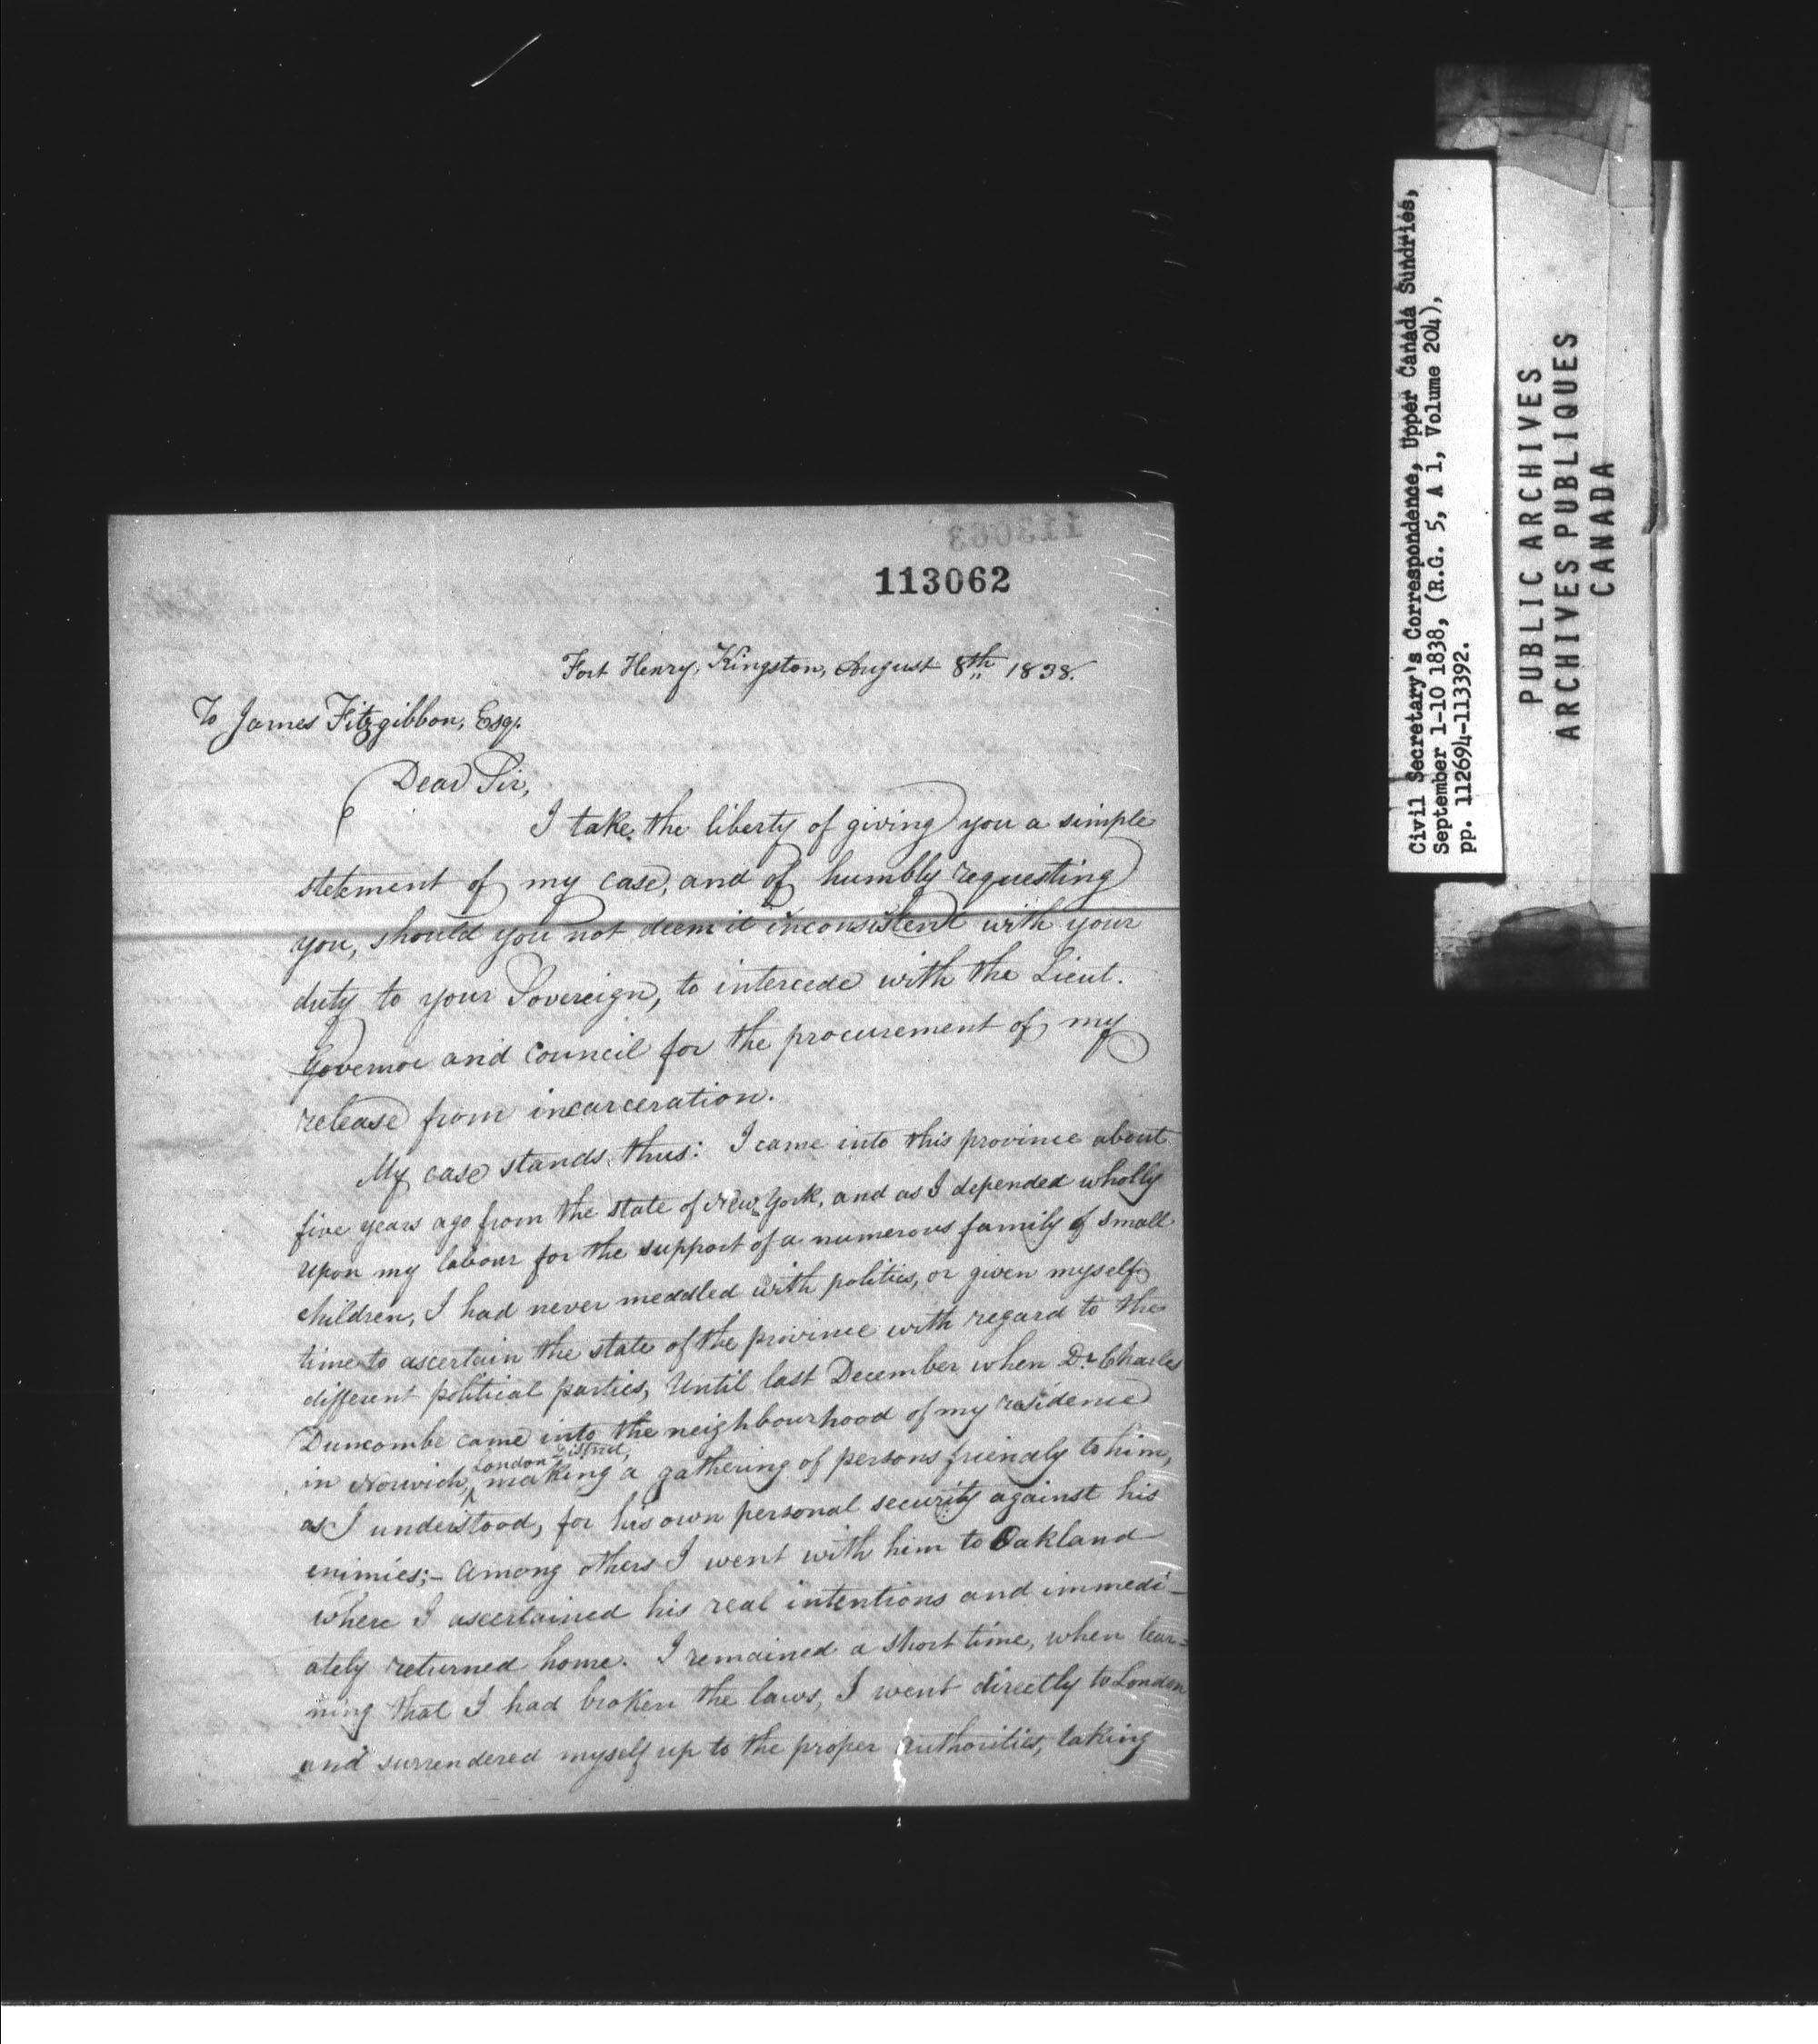 113063
113062
Fort Henry, Kingston, August 8th 1838.
To James Fitzgibbon, Esqr.
Dear Sir,
I take the liberty of giving you a simple
statement of my case, and of humbly requesting
you, should you not deem it inconsistent with your
duty to your Sovereign, to intercede with the Lieut.
Governor and Council for the procurement of my
release from incarceration.
My case stands thus: I came into this province about
five years ago from the state of New York, and as I depended wholly
upon my labour for the support of a numerous family of small
children, I had never meddled with politics, or given myself
time to ascertain the state of the province with regard to the
different political parties, Until last December when Dr. Charles
Duncombe came into the neighbourhood of my residence
in Norwich, London District, making a gathering of persons friendly to him,
as I understood, for his own personal security against his
enimies;- Among others I went with him to Oakland
where I ascertained his real intentions and immedi-
ately returned home. I remained a short time, when lear-
ning that I had broken the laws, I went directly to London
and surrendered myself up to the proper authorities, taking
Civil Secretary's Correspondence, Upper Canada Sundries,
September 1-10 1838, (R.G. 5, A 1, Volume 204),
pp. 112694-113392.
PUBLIC ARCHIVES
ARCHIVES PUBLIQUES
CANADA